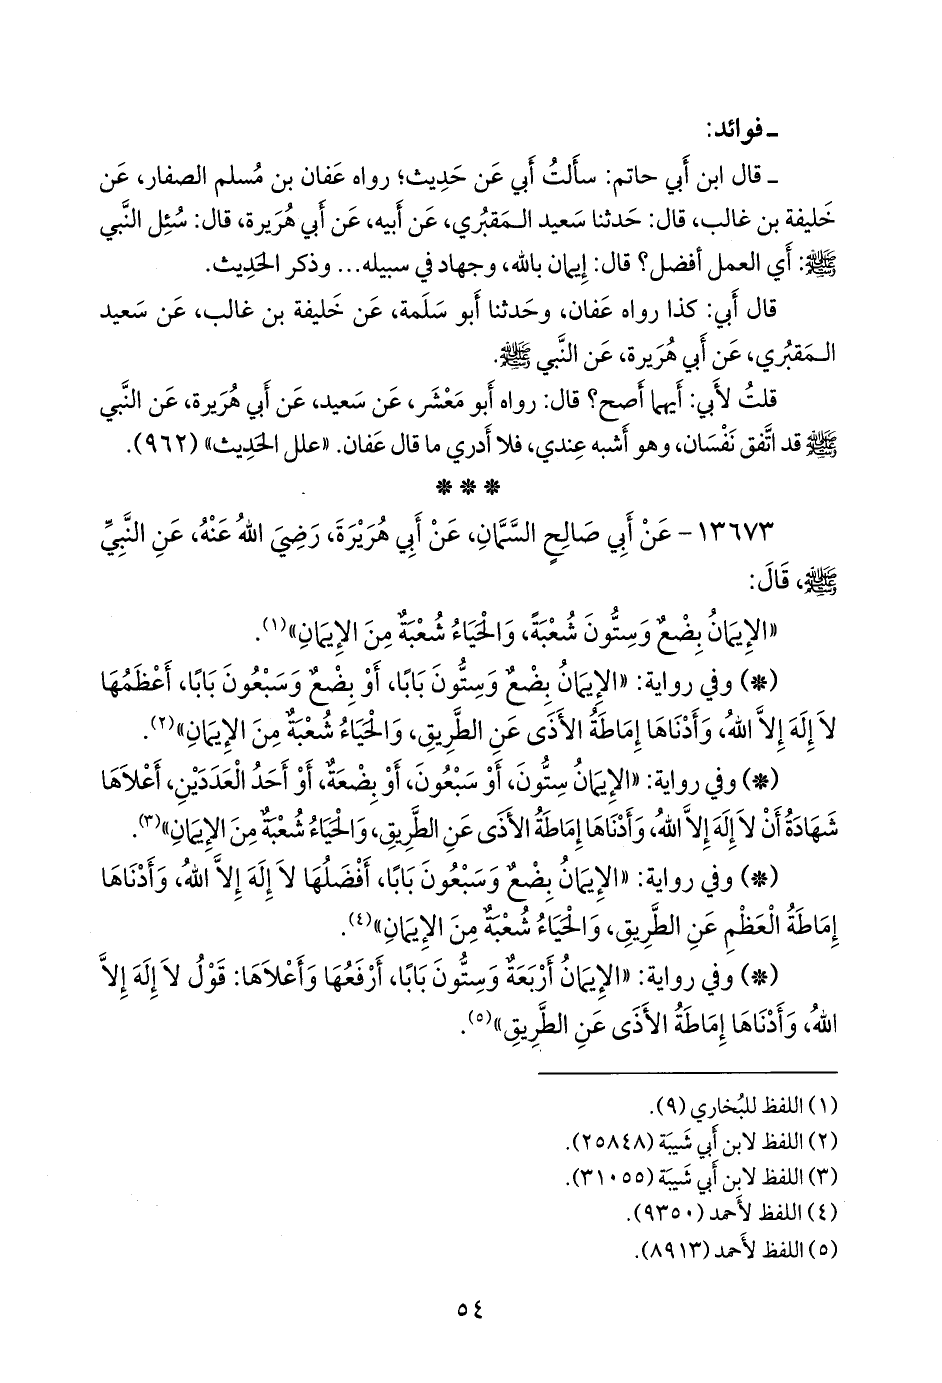 ـ فوائد:
ـ قال ابن أَبي حاتم: سأَلتُ أَبي عَن حَدِيث؛ رواه عَفان بن مُسلم الصفار، عَن
خَليفة بن غالب، قال: حَدثنا سَعيد الـمَقبُري، عَن أَبيه، عَن أَبي هُرَيرة، قال: سُئِل النَّبي
ﷺ: أَي العمل أَفضل؟ قال: إِيمان بالله، وجهاد في سبيله... وذكر الحَدِيث.
قال أَبي: كذا رواه عَفان، وحَدثنا أَبو سَلَمة، عَن خَليفة بن غالب، عَن سَعيد
الـمَقبُري، عَن أَبي هُرَيرة، عَن النَّبي ﷺ.
قلتُ لأَبي: أَيهما أَصح؟ قال: رواه أَبو مَعْشَر، عَن سَعيد، عَن أَبي هُرَيرة، عَن النَّبي
ﷺ قد اتَّفق نَفْسَان، وهو أَشبه عِندي، فلا أَدري ما قال عَفان. «علل الحَدِيث» (٩٦٢).
* * *
١٣٦٧٣ - عَنْ أَبِي صَالِحٍ السَّمَّانِ، عَنْ أَبِي هُرَيْرَةَ، رَضِيَ اللهُ عَنْهُ، عَنِ النَّبِيِّ
ﷺ، قَالَ:
«الإِيمَانُ بِضْعٌ وَسِتُّونَ شُعْبَةً، وَالْحَيَاءُ شُعْبَةٌ مِنَ الإِيمَانِ»(١).
(*) وفي رواية: «الإِيمَانُ بِضْعٌ وَسِتُّونَ بَابًا، أَوْ بِضْعٌ وَسَبْعُونَ بَابًا، أَعْظَمُهَا
لاَ إِلَهَ إِلاَّ اللهُ، وَأَدْنَاهَا إِمَاطَةُ الأَذَى عَنِ الطَّرِيقِ، وَالْحَيَاءُ شُعْبَةٌ مِنَ الإِيمَانِ»(٢).
(*) وفي رواية: «الإِيمَانُ سِتُّونَ، أَوْ سَبْعُونَ، أَوْ بِضْعَةٌ، أَوْ أَحَدُ الْعَدَدَيْنِ، أَعْلاَهَا
شَهَادَةُ أَنْ لاَ إِلَهَ إِلاَّ اللهُ، وَأَدْنَاهَا إِمَاطَةُ الأَذَى عَنِ الطَّرِيقِ، وَالْحَيَاءُ شُعْبَةٌ مِنَ الإِيمَانِ»(٣).
(*) وفي رواية: «الإِيمَانُ بِضْعٌ وَسَبْعُونَ بَابًا، أَفْضَلُهَا لاَ إِلَهَ إِلاَّ اللهُ، وَأَدْنَاهَا
إِمَاطَةُ الْعَظْمِ عَنِ الطَّرِيقِ، وَالْحَيَاءُ شُعْبَةٌ مِنَ الإِيمَانِ»(٤).
(*) وفي رواية: «الإِيمَانُ أَرْبَعَةٌ وَسِتُّونَ بَابًا، أَرْفَعُهَا وَأَعْلاَهَا: قَوْلُ لاَ إِلَهَ إِلاَّ
اللهُ، وَأَدْنَاهَا إِمَاطَةُ الأَذَى عَنِ الطَّرِيقِ»(٥).
(١) اللفظ للبُخاري (٩).
(٢) اللفظ لابن أَبي شَيبَة (٢٥٨٤٨).
(٣) اللفظ لابن أَبي شَيبَة (٣١٠٥٥).
(٤) اللفظ لأَحمد (٩٣٥٠).
(٥) اللفظ لأَحمد (٨٩١٣).
٥٤